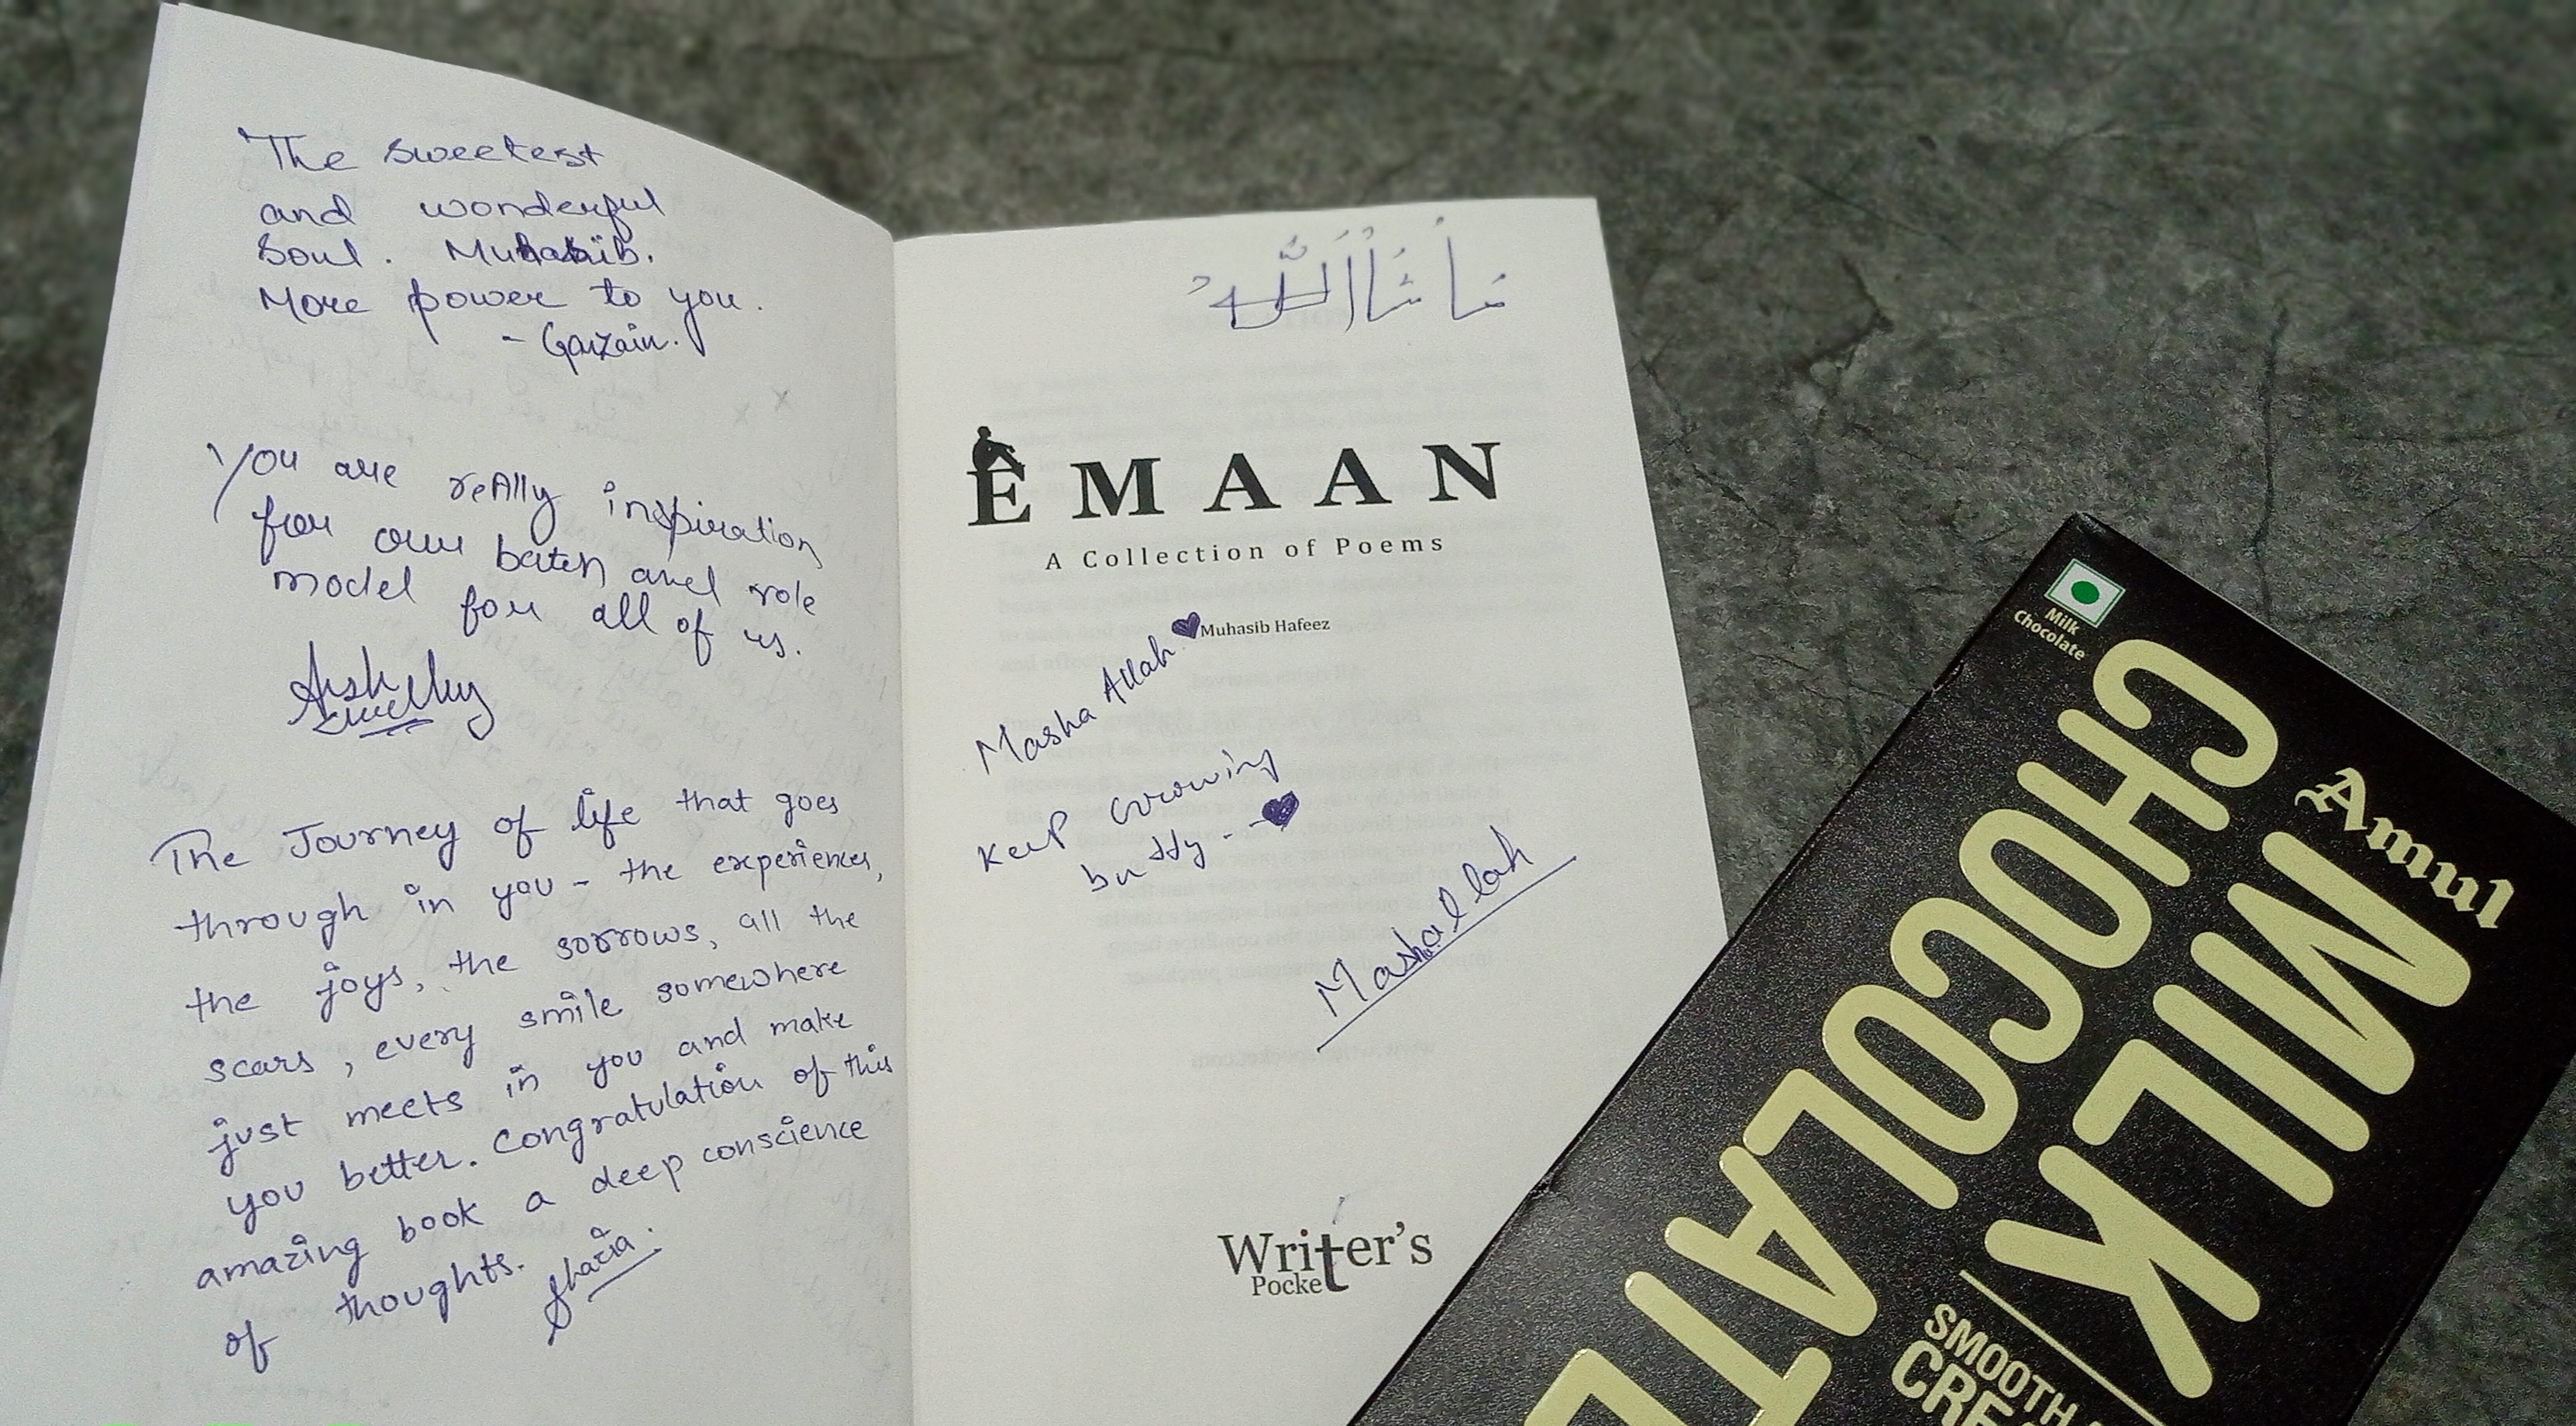 The sweetest
and wonderful
soul. Muhasib.
More power to you.
- Garzain.
You are reAlly inspiration
for our batch and role
model for all of us.
The Journey of life that goes
through in you - the experiences,
the joys, the sorrows, all the
scars, every smile somewhere
just meets in you and make
you better. Congratulation of this
amazing book a deep conscience
of thoughts. Sharia.
مَا شَاْاَللّٰه
EMAAN
A Collection of Poems
Muhasib Hafeez
Masha Allah
Keep Growing
buddy
Mashallah
Writer's
Pocket
Milk
Chocolate
Amul
MILK
CHOCOLATE
SMOOTH